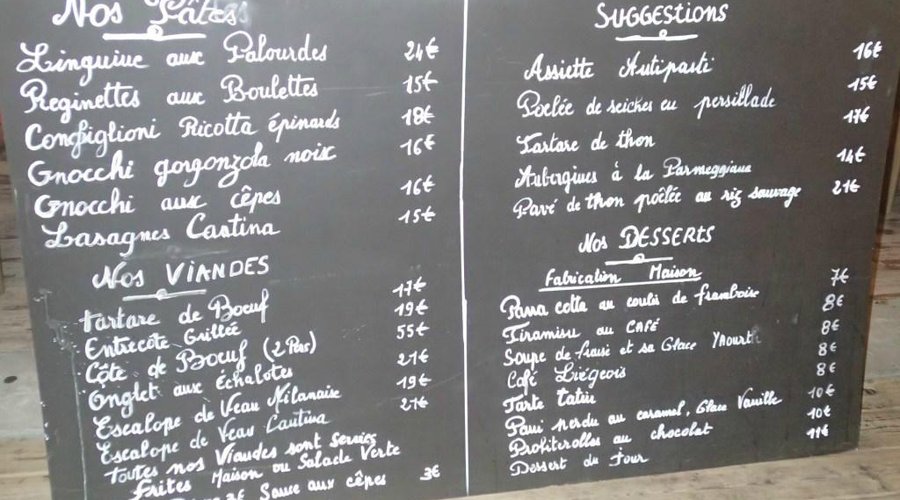 Nos Pâtes
Linguine aux Palourdes 24€
Reginettes aux Boulettes 15€
Conghiglioni Ricotta épinards 18€
Gnocchi gorgonzola noix 16€
Gnocchi aux cêpes 16€
Lasagnes Cantina 15€
Nos VIANDES
Tartare de Bœuf 17€
Entrecôte Grillée 19€
Côte de Bœuf (2 Pers) 55€
Onglet aux Échalotes 21€
Escalope de Veau Milanaise 19€
Escalope de Veau Cantina 21€
Toutes nos Viandes sont Servies
Frites Maison ou Salade Verte
3€ Sauce aux cêpes 3€
SUGGESTIONS
Assiette Antipasti 16€
Poêlée de seiches en persillade 15€
Tartare de thon 17€
Aubergines à la Parmeggiana 14€
Pavé de thon poêlée au riz sauvage 21€
Nos DESSERTS
Fabrication Maison
Panna cotta au coulis de framboise 7€
Tiramisu au CAFÉ 8€
Soupe de fraise et sa Glace Yaourt 8€
Café Liégeois 8€
Tarte tatin 8€
Pain perdu au caramel, Glace Vanille 10€
Profiterolles au chocolat 10€
Dessert du Jour 11€